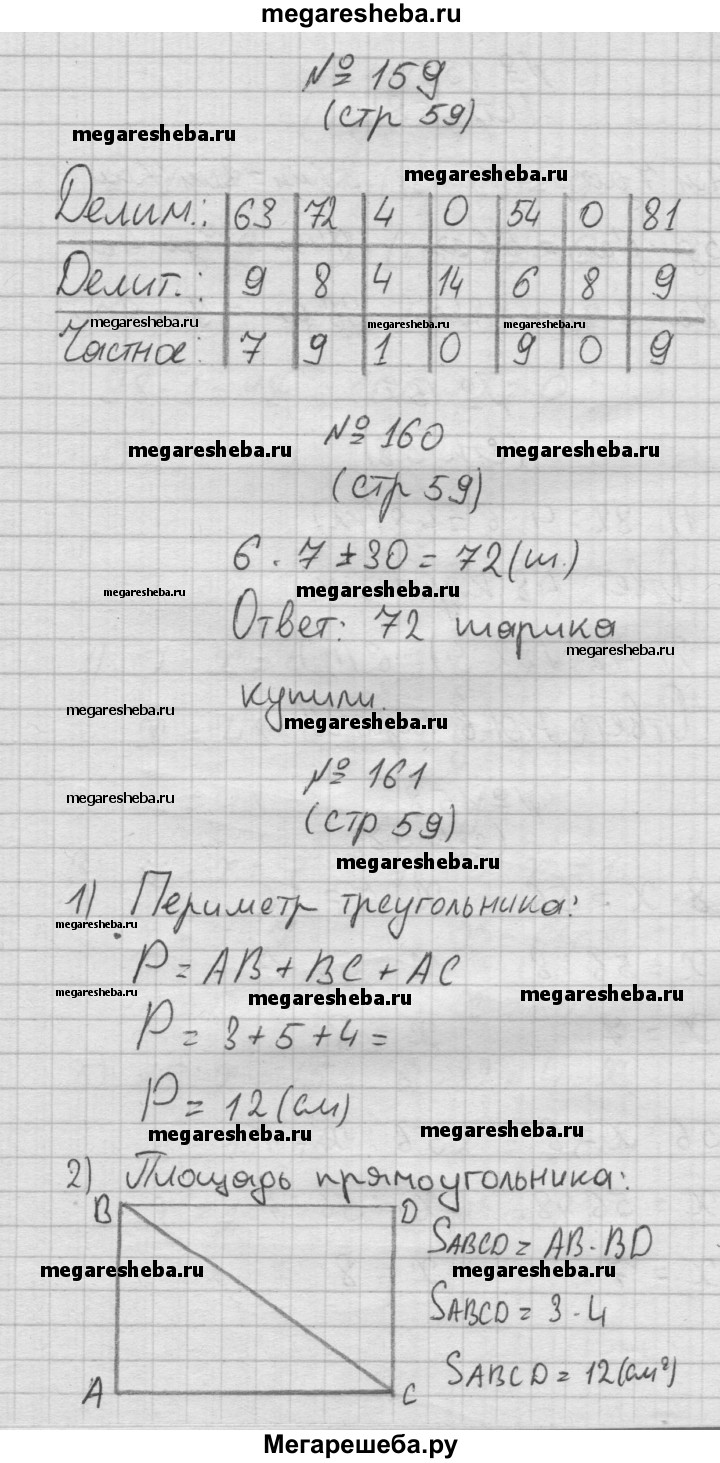 megaresheba.ru
№ 159
(стр 59)
megaresheba.ru
megaresheba.ru
Делим.: 63 72 4 0 54 0 81
Делит.: 9 8 4 14 6 8 9
megaresheba.ru megaresheba.ru megaresheba.ru
Частное: 7 9 1 0 9 0 9
№ 160
megaresheba.ru megaresheba.ru
(стр 59)
6 · 7 + 30 = 72 (ш.)
megaresheba.ru megaresheba.ru
Ответ: 72 шарика
megaresheba.ru
купили.
megaresheba.ru megaresheba.ru
№ 161
megaresheba.ru
(стр 59)
megaresheba.ru
1) Периметр треугольника:
megaresheba.ru
P = AB + BC + AC
megaresheba.ru megaresheba.ru megaresheba.ru
P = 3 + 5 + 4 =
P = 12 (см)
megaresheba.ru megaresheba.ru
2) Площадь прямоугольника:
B D
SABCD = AB · BD
megaresheba.ru megaresheba.ru
SABCD = 3 · 4
SABCD = 12 (см²)
A C
Мегарешеба.ру